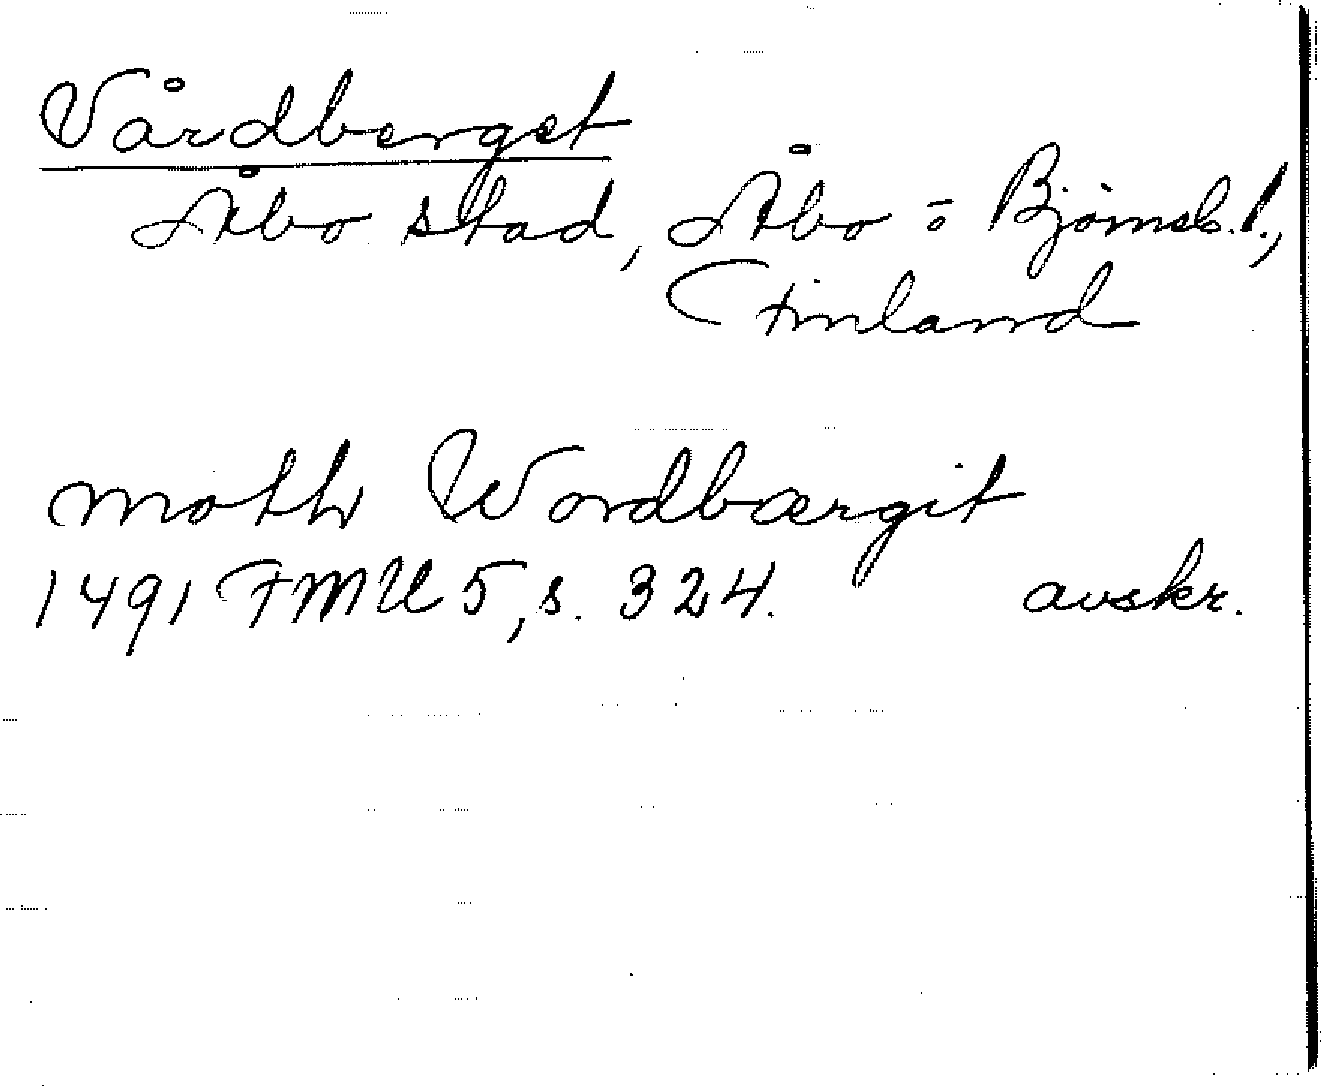 Vårdberget
Åbo stad, Åbo = Björneb. l.,
Finland
moth Wordbærgit
1491 FMU 5, s. 324. avskr.